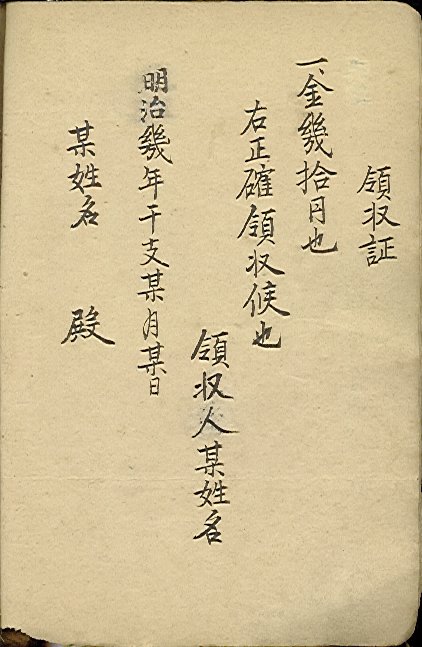 領収証
一、金幾拾円也
右正確領収候也
領収人某姓名
明治幾年干支某月某日
某姓名 殿